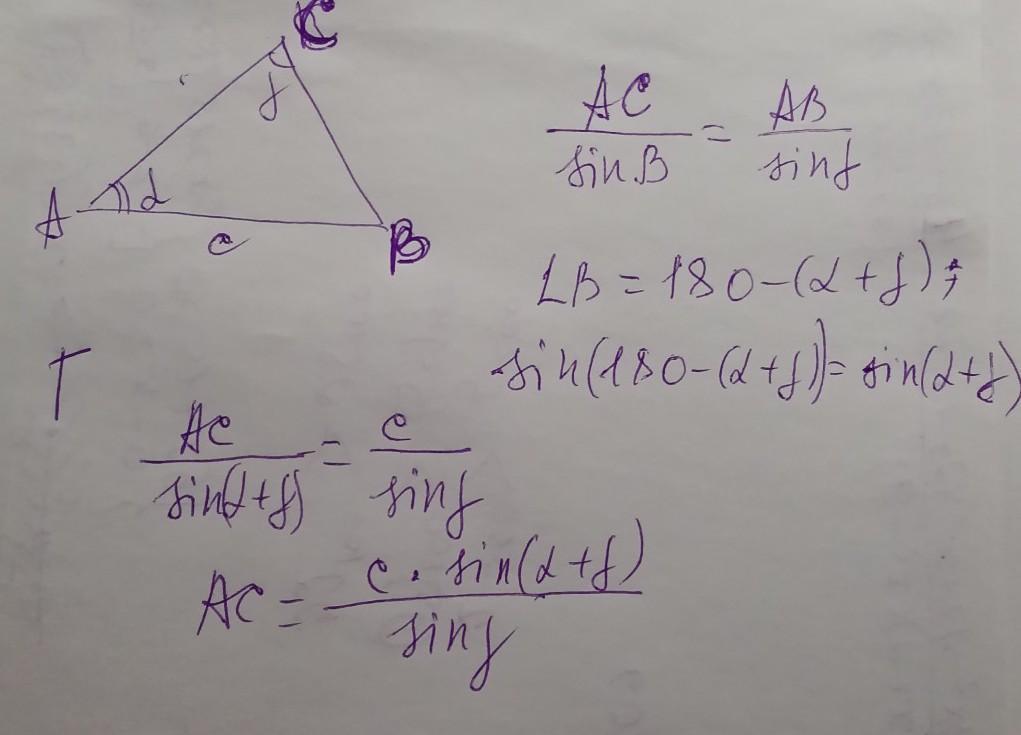 C
γ
A α
c
B
AC/sinB = AB/sinγ
∠B = 180-(α+γ);
sin(180-(α+γ))= sin(α+γ)
T
AC/sin(α+γ) = c/sinγ
AC = c · sin(α+γ)/sinγ